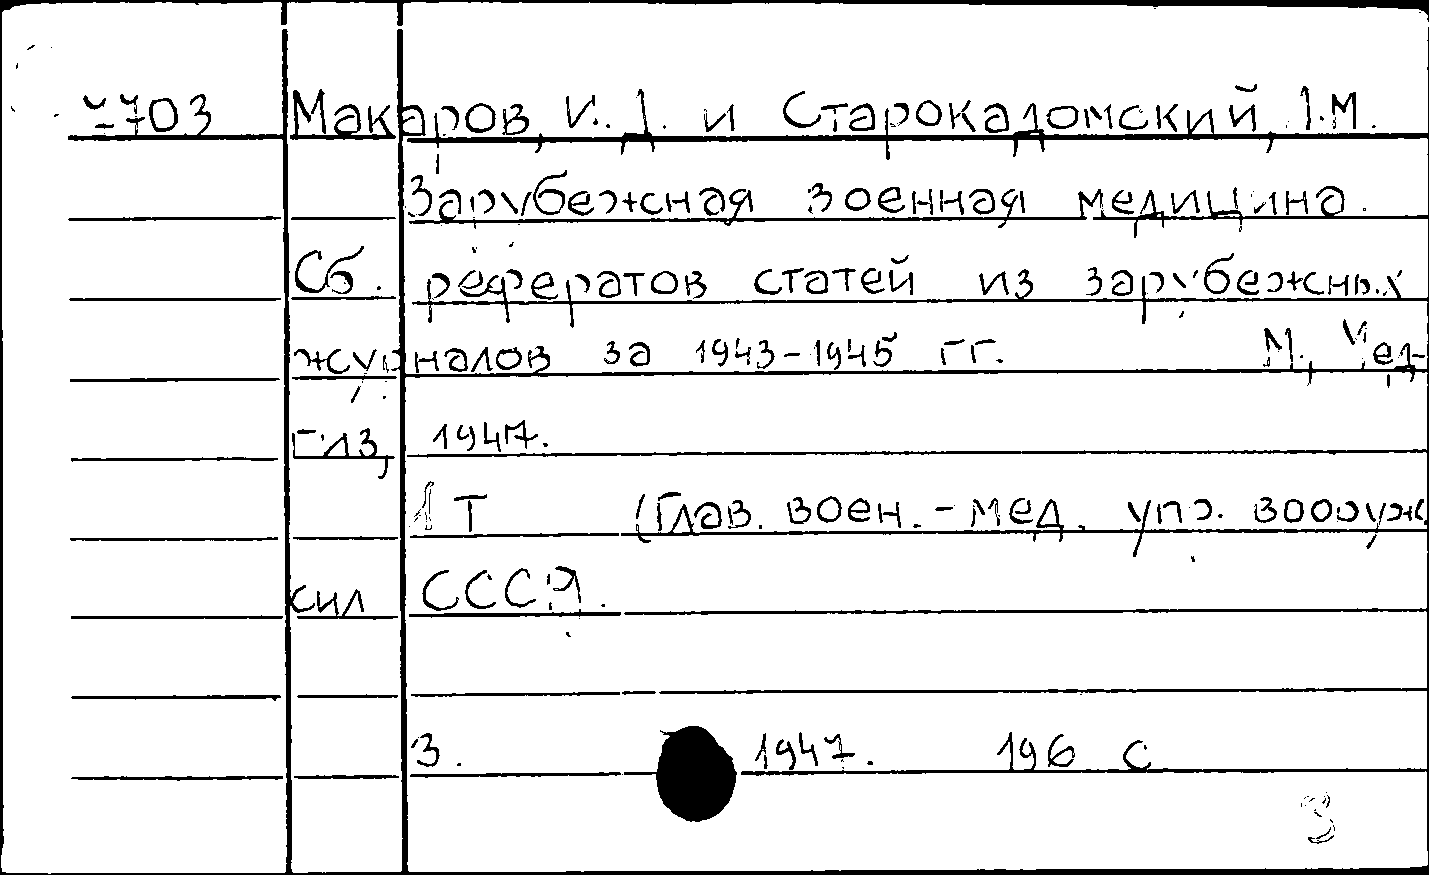 Макаров, И. Д. и Старокадомский, Л.М.
Зарубежная военная медицина.
Сб. рефератов статей из зарубежных
журналов за 1943-1945 гг. М., Мед-
гиз, 1947.
Т (Глав. воен.-мед. упр. вооруж.
сил СССР).
3. 1947. 196 с
3